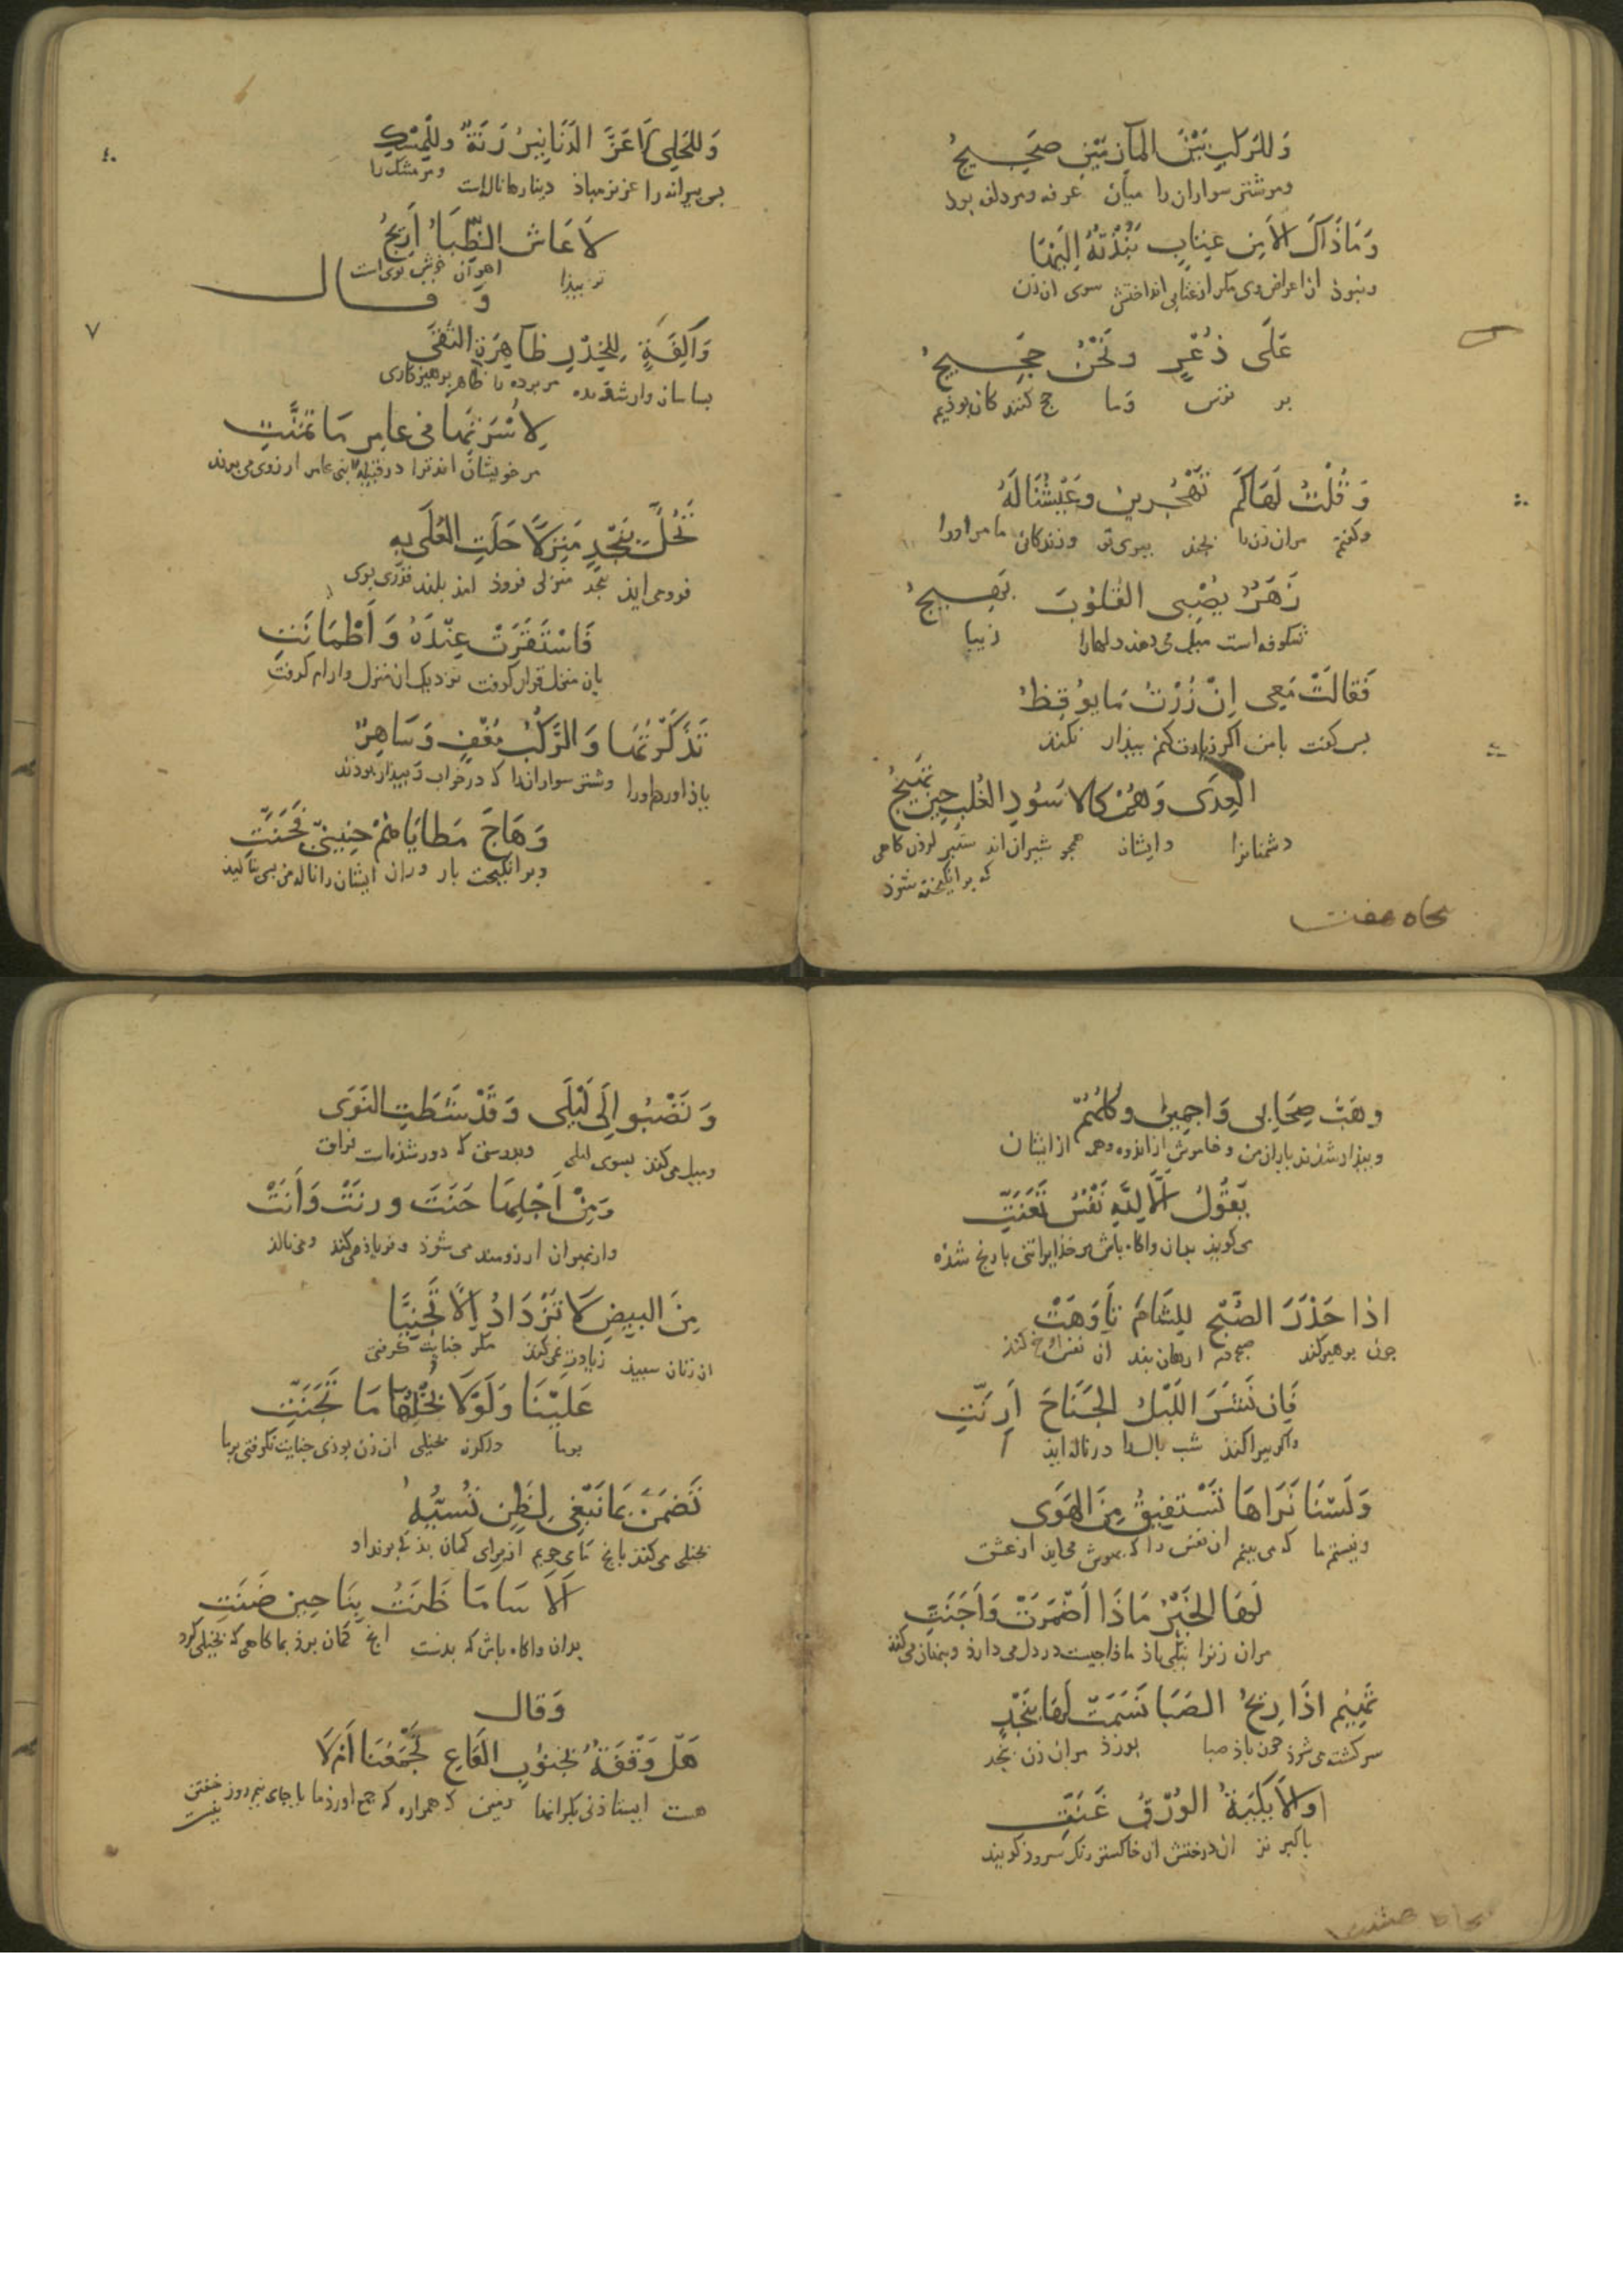 وَلِلرَّكْبِ بَيْنَ المَأْزِمَيْنِ ضَجِيجُ
ومر شتر سواران را میان عرفه ومزدلفه بود
وَمَا ذَاكَ اِلَّا مِن عِتَابٍ نَبَذْتُهُ اِلَيْهَا
ونبوذ ان اعراض وی مکر از عتابی انداختش سوی ان زن
عَلَى ذُعْرٍ وَنَحْنُ حَجِيجُ
بر ترس وما حج کنندکان بوذیم
وَقُلْتُ لَهَا كَمْ تَهْجُرِينَ وَعَيْشُنَا لَهُ
وکفتم مران زن را بچند ببری تو وزندکانی ما مر اورا
زَهَرٌ يُصْبِي القُلُوبَ بَهِيجُ
شکوفه است میل می دهد دلهارا زیبا
فَقَالَتْ مَعِي اِنْ زُرْتُ مَا يُوقِظُ
بس کفت با من اکر زیارت کنم بیذار نکند
العِدَى وَهُمْ كَالاُسُودِ الغُلْبِ حِينَ تَهِيجُ
دشمنانرا وایشان همجو شیران اند ستبر کردن کاهی
که بر انکیخته شوذ
وَلِلحَلْيِ لَا عَزَّ الدَنَانِيرُ رَنَّةٌ وَلِلمِسْكِ
بس بیرایه را عزیز مباذ دینارها ناله است ومر مشک را
لَا عَاشَ الظِّبَاءُ اَرِيجُ
اهوان خوش بوی است
وَقَالَ
وَآلِفَةٍ لِلخِدْرِ ظَاهِرَةِ التُّقَى
مر برده را ظاهر برهیزکاری
لِاُسْرَتِهَا فِي عَامِرٍ مَا تَمَنَّتِ
مر خویشان اند ترا در قبیلهٔ بنی عامر ارزوی می برند
تَحُلُّ بِنَجْدٍ مَنْزِلًا حَلَّتِ العُلَى بِهِ
فرو می ایذ بنجد منزلی فروذ امذ بلند قذری بوی
فَاسْتَقَرَّتْ عِنْدَهُ وَاَطْمَاَنَّتِ
بان منزل قرار کرفت نزدیک ان منزل وارام کرفت
تَذَكَّرْتُهَا وَالرَّكْبُ مُغْفٍ وَسَاهِرٌ
یاذ اوردم اورا وشتر سواران را که در خواب وبیذار بوذند
وَهَاجَ مَطَايَاهُمْ حَنِينِي فَحَنَّتِ
وبر انکیخت بار وران ایشان را ناله من بس بنالید
بنجاه هفت
وَهَبَّ صِحَابِي وَاجِمِينَ وَكُلُّهُمْ
وبیذار شذند یاران من وخاموش از اندوه وهمه از ایشان
يَقُولُ اَلَا لِلّٰهِ نَفْسٌ تَعَنَّتِ
می کویذ بدان واکاه باش مر خذایراتنی با رنج شذه
اِذَا حَذَرَ الصُّبْحُ اللِثَامَ تَاَوَّهَتْ
جون بر هیر کند صبح دم ان دهان بند ان نفس اخ کند
فَاِن نَشَرَ اللَيْلُ الجَنَاحَ اَرَنَّتِ
واکر بیراکند شب بالها در ناله ایذ
وَلَسْنَا نَرَاهَا تَسْتَفِيقُ مِنَ الهَوَى
ونیستم ما که می بینم ان نفس را که بهوش می ایذ از عشق
لَهَا الخَيْرُ مَاذَا اَضْمَرَتْ وَاَجَنَّتِ
مران زنرا نیکی باذ ماذا جیست در دل می دارذ وبنهان می کند
تَهِيمُ اِذَا رِيحُ الصَبَا نَسَمَتْ لَهَا بِنَجْدٍ
سر کشته می شوذ جون باذ صبا بوزذ مران زن بنجد
اَو الاَيْكِيَّةُ الوُرْقُ غَنَّتِ
یا کبوتر ان درختش ان خاکستر رنک سروذ کویند
وَتَصْبُو اِلَى لَيْلَى وَقَدْ شَطَتِ النَوَى
ومیل می کند بسوی لیلی وبدرستی که دور شذه است فراق
وَمِنْ اَجْلِهَا حَنَّتْ وَرَنَّتْ وَاَنَّتْ
واز بهر ان ارزومند می شوذ وفریاذ می کند ومی نالذ
مِنَ البِيضِ لَا تَزْدَادُ اِلَّا تَجَنِّيًا
از زنان سبیذ زیادت نمی کند مکر جنایت کرفتی
عَلَيْنَا وَلَوْلَا بُخْلُهَا مَا تَجَنَّتِ
بر ما واکر نه بخیلی ان زن بوذی جنایت نکرفتی بر ما
تَضِنُّ بِمَا نَبْغِي لِظَنٍ نُسِيئُهُ
بخیلی می کند بانج ما می جویم از برای کمان بذ که برند او
اَلَا سَاءَ مَا ظَنَّتْ بِنَا حِينَ ضَنَّتِ
بدان واکاه باش که بدست انج کمان برذ بما کاهی که بخیلی کرد
وَقَالَ
هَل وَقْفَةٌ بِجَنُوبِ القَاعِ تَجْمَعُنَا اَمْ لَا
هست ایستاذنی بکرانها زمین که هموارہ که جمع اورذ ما یا جای نیم روز خفتن
نیست
بنجاه هشت